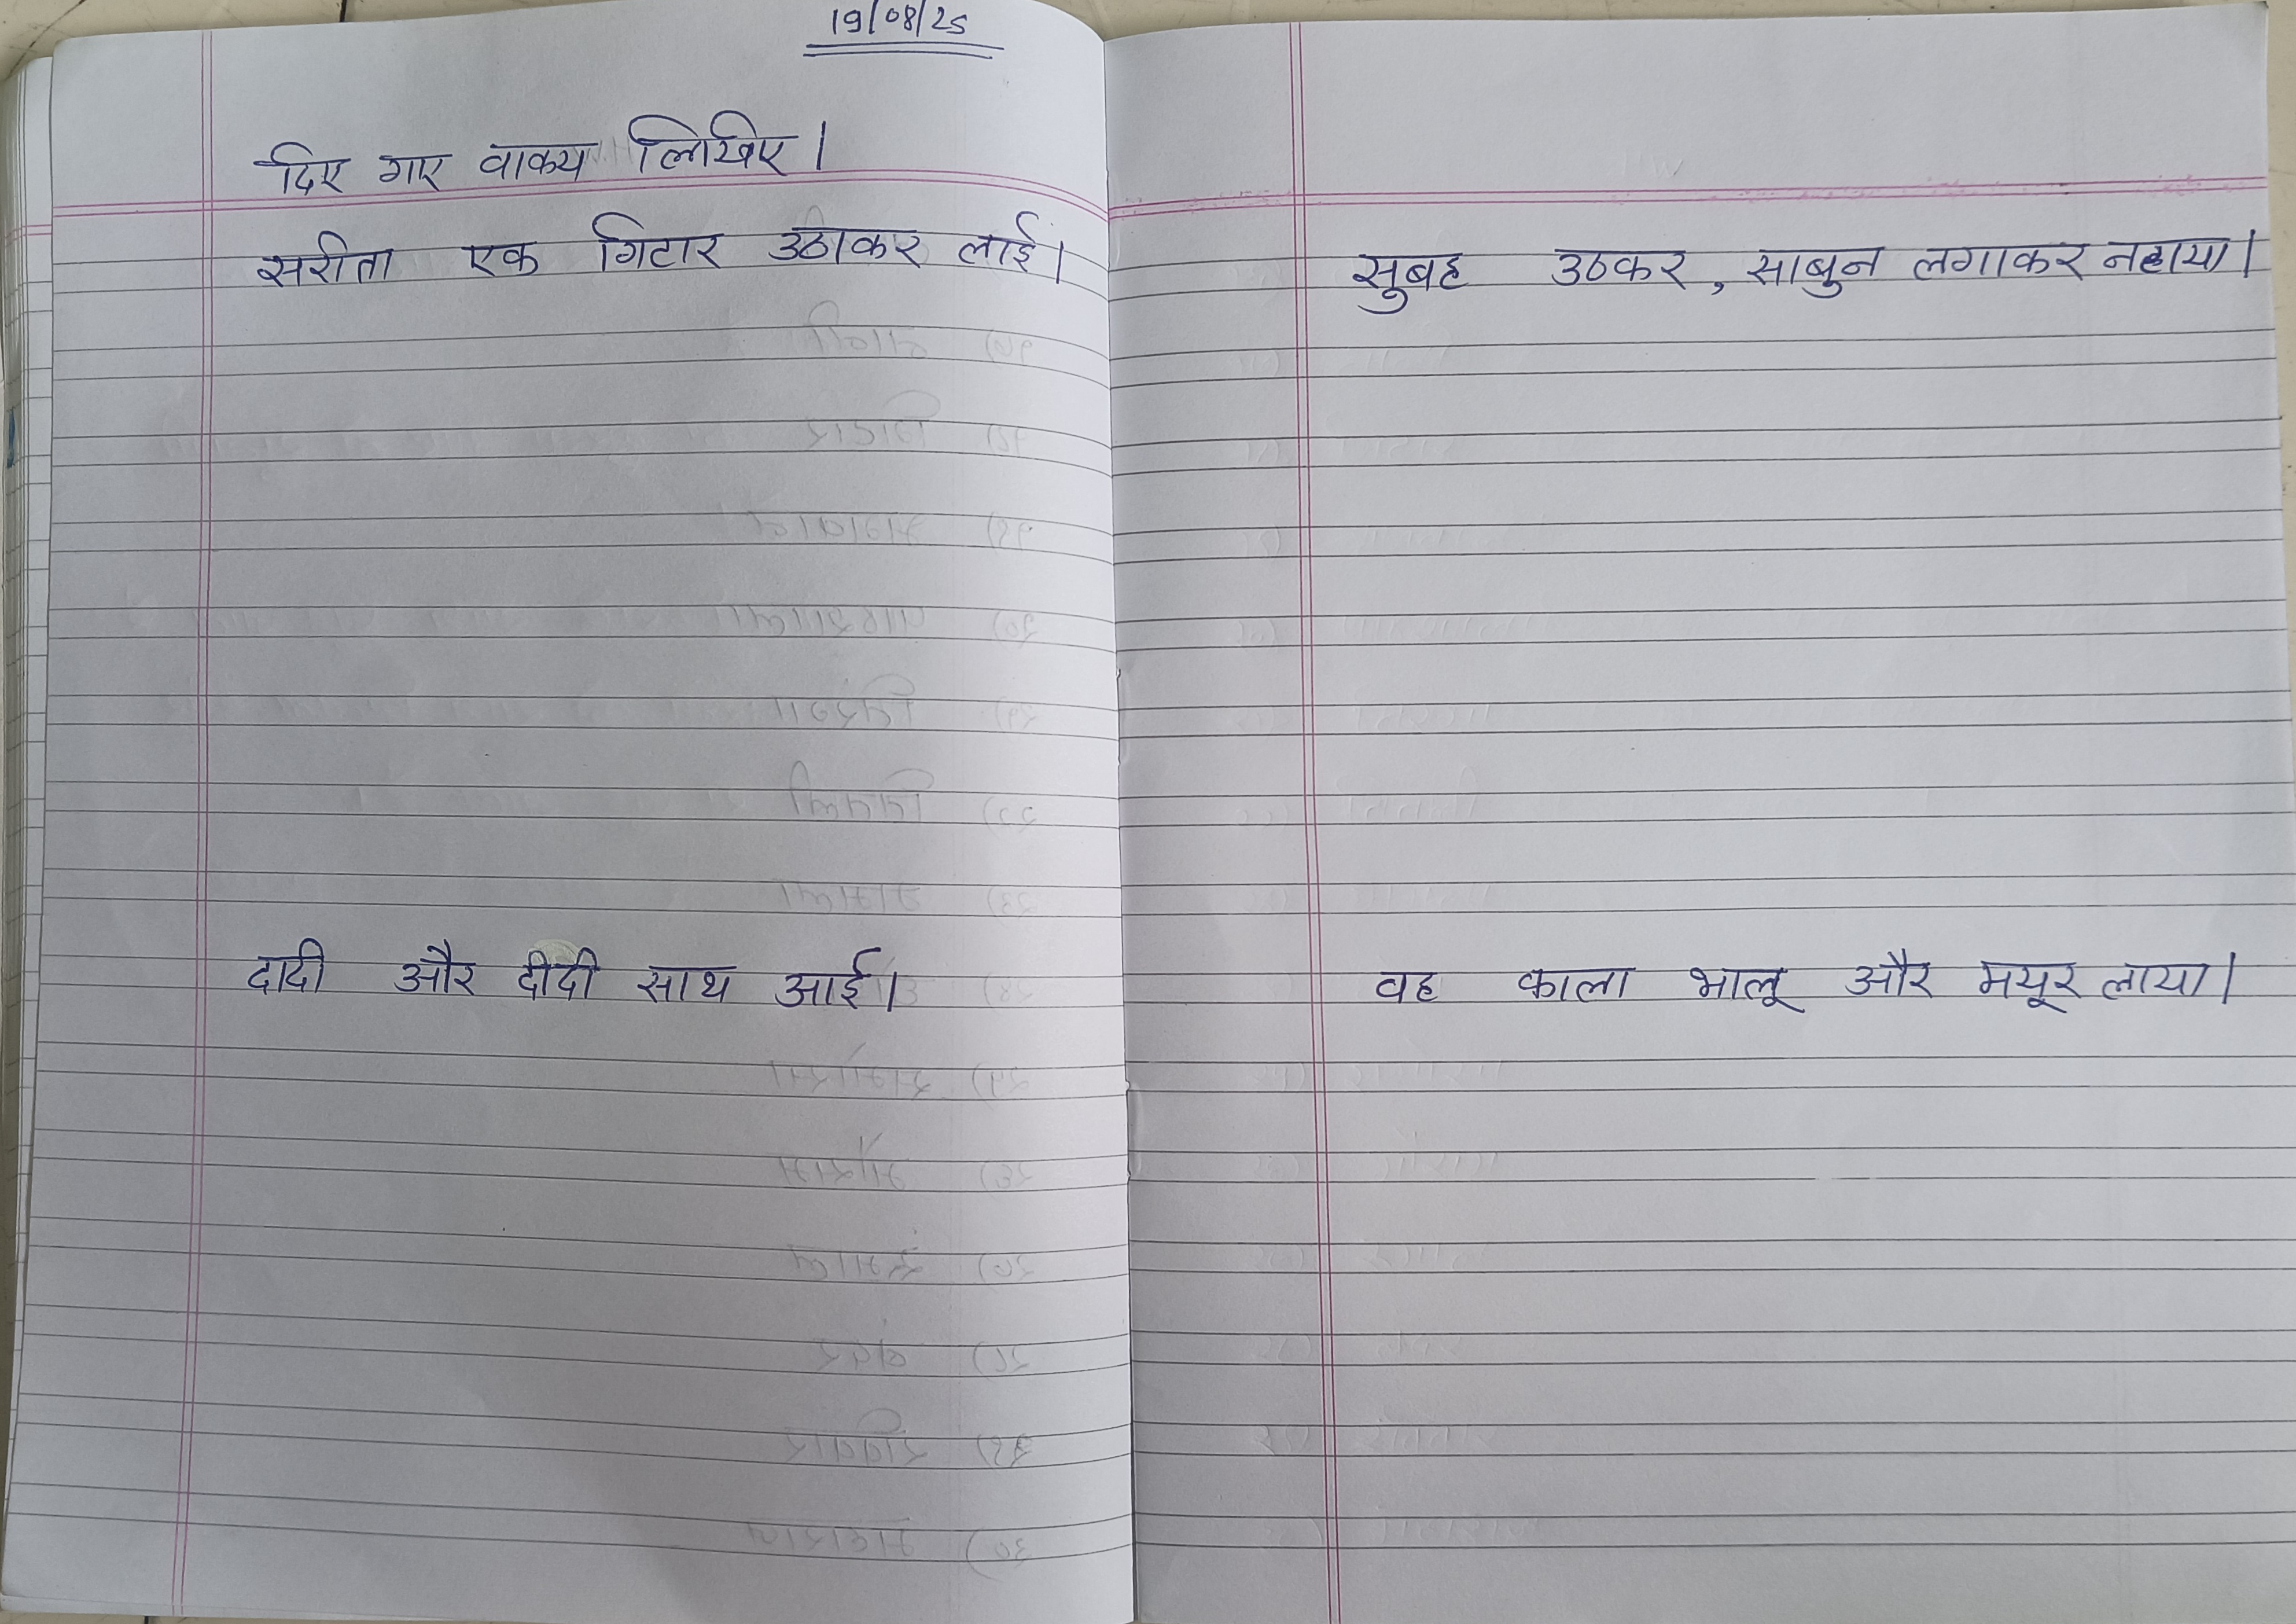 19/08/25
दिए गए वाक्य लिखिए।
सरीता एक गिटार उठाकर लाई।
दादी और दीदी साथ आई।
सुबह उठकर, साबुन लगाकर नहाया।
वह काला भालू और मयूर लाया।